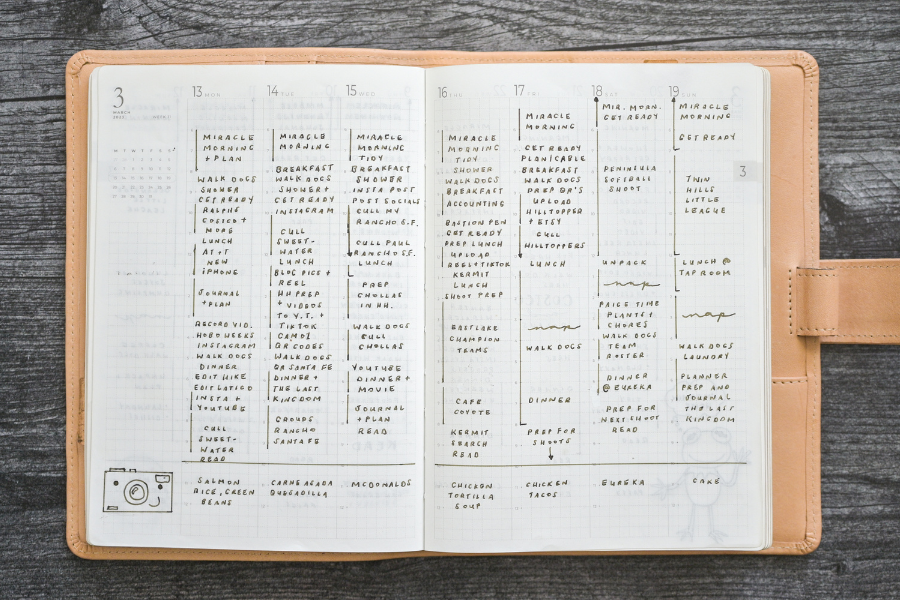 3
MARCH
13 MON
MIRACLE
MORNING
+ PLAN
WALK DOGS
SHOWER
GET READY
RALPHS
COSTCO +
MORE
LUNCH
AT+T
NEW
iPHONE
JOURNAL
+ PLAN
RECORD VID.
HOBO WEEKS
INSTAGRAM
WALK DOGS
DINNER
EDIT HIKE
EDIT LATICO
INSTA +
YOUTUBE
CULL
SWEET-
WATER
READ
SALMON
RICE, GREEN
BEANS
14 TUE
MIRACLE
MORNING
BREAKFAST
WALK DOGS
SHOWER +
GET READY
INSTAGRAM
CULL
SWEET-
WATER
LUNCH
BLOG PICS +
REEL
HH PREP
+ VIDEOS
TO Y.T. +
TIKTOK
QR CODES
WALK DOGS
QR SANTA FE
DINNER +
THE LAST
KINGDOM
CROUDS
RANCHO
SANTA FE
CARNE ASADA
QUESADILLA
15 WED
MIRACLE
MORNING
TIDY
BREAKFAST
SHOWER
INSTA POST
POST SOCIALS
CULL MV
RANCHO S.F.
CULL PAUL
RANCHO S.F.
LUNCH
PREP
CHOLLAS
IN HH.
WALK DOGS
CULL
CHOLLAS
YOUTUBE
DINNER +
MOVIE
JOURNAL
+ PLAN
READ
MCDONALDS
16 THU
MIRACLE
MORNING
TIDY
SHOWER
WALK DOGS
BREAKFAST
ACCOUNTING
BASTION PEN
GET READY
PREP LUNCH
UPLOAD
REEL + TIKTOK
KERMIT
LUNCH
SHOOT PREP
EASTLAKE
CHAMPION
TEAMS
CAFE
COYOTE
KERMIT
SEARCH
READ
CHICKEN
TORTILLA
SOUP
17 FRI
MIRACLE
MORNING
GET READY
PLAN | CABLE
BREAKFAST
WALK DOGS
PREP QR'S
UPLOAD
HILLTOPPER
+ ETSY
CULL
HILLTOPPERS
LUNCH
nap
WALK DOGS
DINNER
PREP FOR
SHOOTS
CHICKEN
TACOS
18 SAT
MIR. MORN.
GET READY
PENINSULA
SOFTBALL
SHOOT
UNPACK
nap
PAIGE TIME
PLANTS +
CHORES
WALK DOGS
TEAM
ROSTER
DINNER
@ EUREKA
PREP FOR
NEXT SHOOT
READ
EUREKA
19 SUN
MIRACLE
MORNING
GET READY
TWIN
HILLS
LITTLE
LEAGUE
LUNCH @
TAP ROOM
nap
WALK DOGS
LAUNDRY
PLANNER
PREP AND
JOURNAL
THE LAST
KINGDOM
CAKE
3